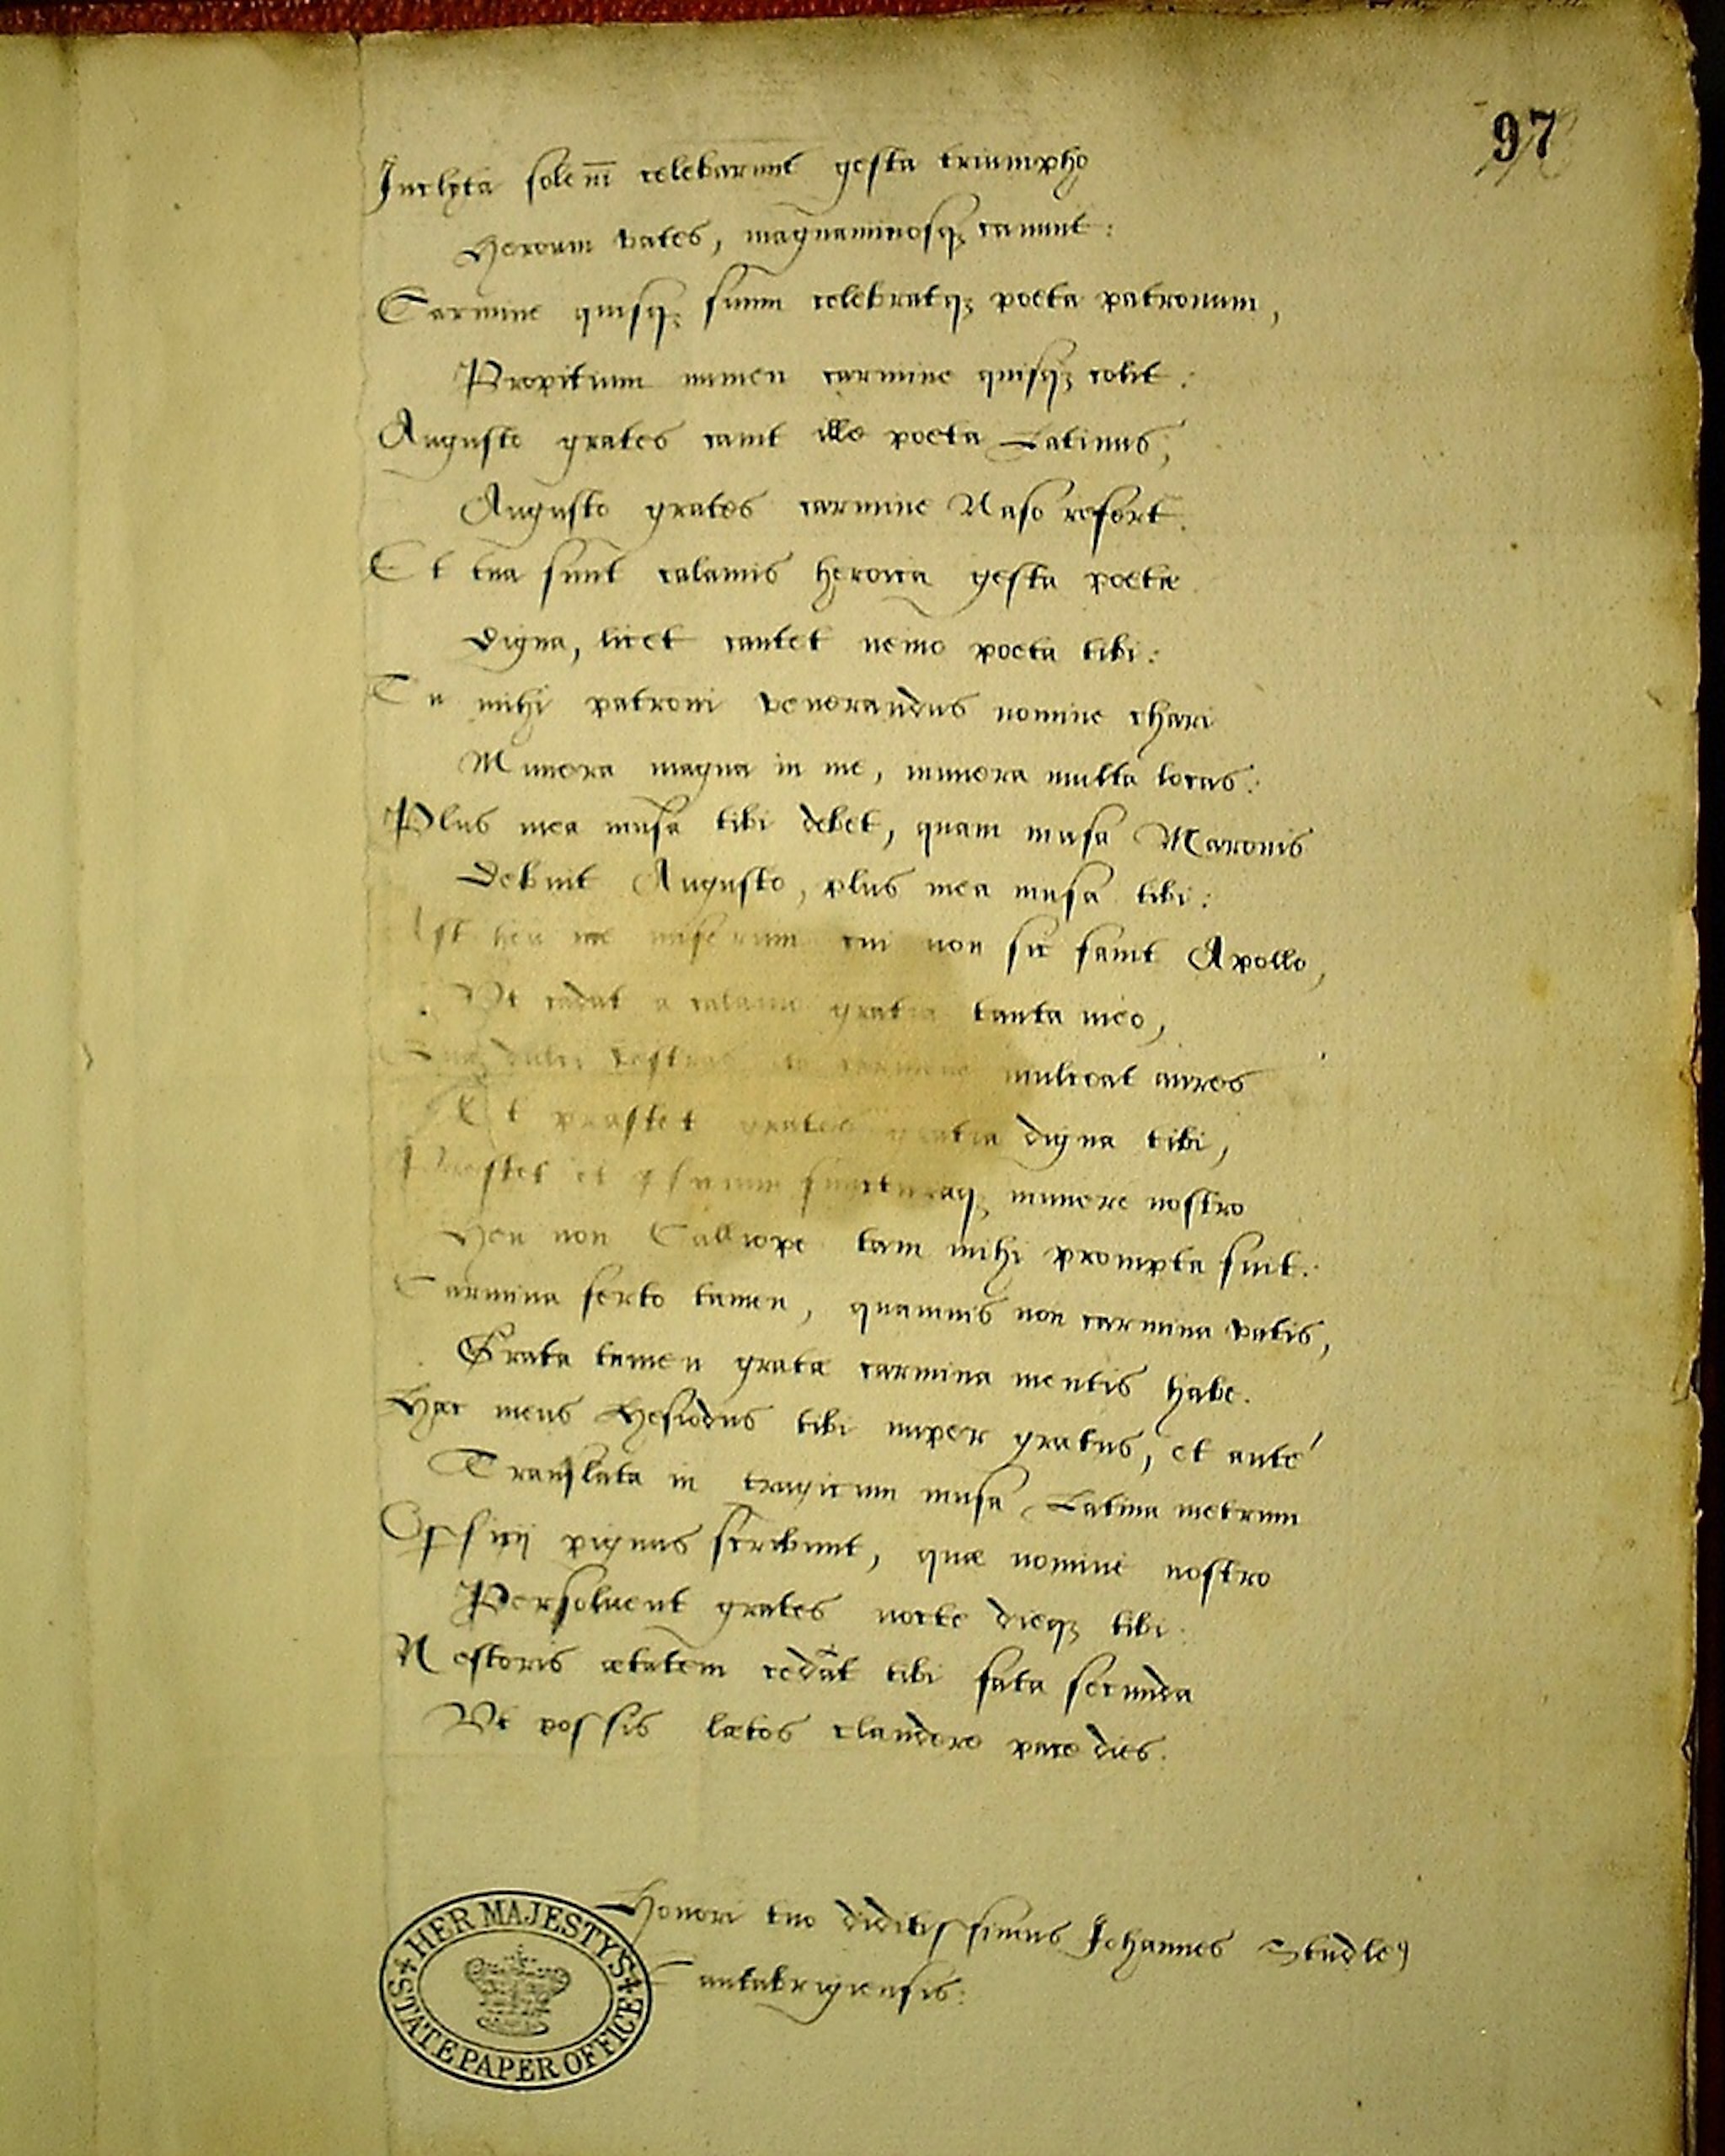 97
Inclyta solēni celebarunt gesta triumpho
Heroum vates, magnaminosq; canunt:
Carmine quisq; suum celebratq; poeta patronum,
Propitium numen carmine quisq; colit:
Augusto grates canit ille poeta Latinus,
Augusto grates carmine Naso refert.
Et tua sunt calamis heroica gesta poetæ
Digna, licet cantet nemo poeta tibi:
Tu mihi patroni venerandus nomine chari
Munera magna in me, munera multa locas:
Plus mea musa tibi debet, quam musa Maronis
Debuit Augusto, plus mea musa tibi:
Ast heu me miserum cui non sic fauit Apollo,
Vt cadat a calamo gratia tanta meo,
dulci vestras carmine mulceat aures
Et præstet gratia digna tibi,
Præstet et munere nostro
Heu non Calliope tam mihi prompta fuit:
Carmina ferto tamen, quamuis non carmina vatis,
Grata tamen gratæ carmina mentis habe.
Hæc meus Hesiodus tibi nuper gratus, et ante
Translata in tragicum musa Latina metrum
Officij pignus scribunt, quæ nomine nostro
Persoluent grates nocte dieq; tibi.
Nestoris ætatem cedāt tibi fata secunda
Vt possis lætos claudere pace dies.
Honori tuo dediti++ssimus Johannes Studley
Cantabrigiensis:
HER MAJESTY'S
STATE PAPER OFFICE